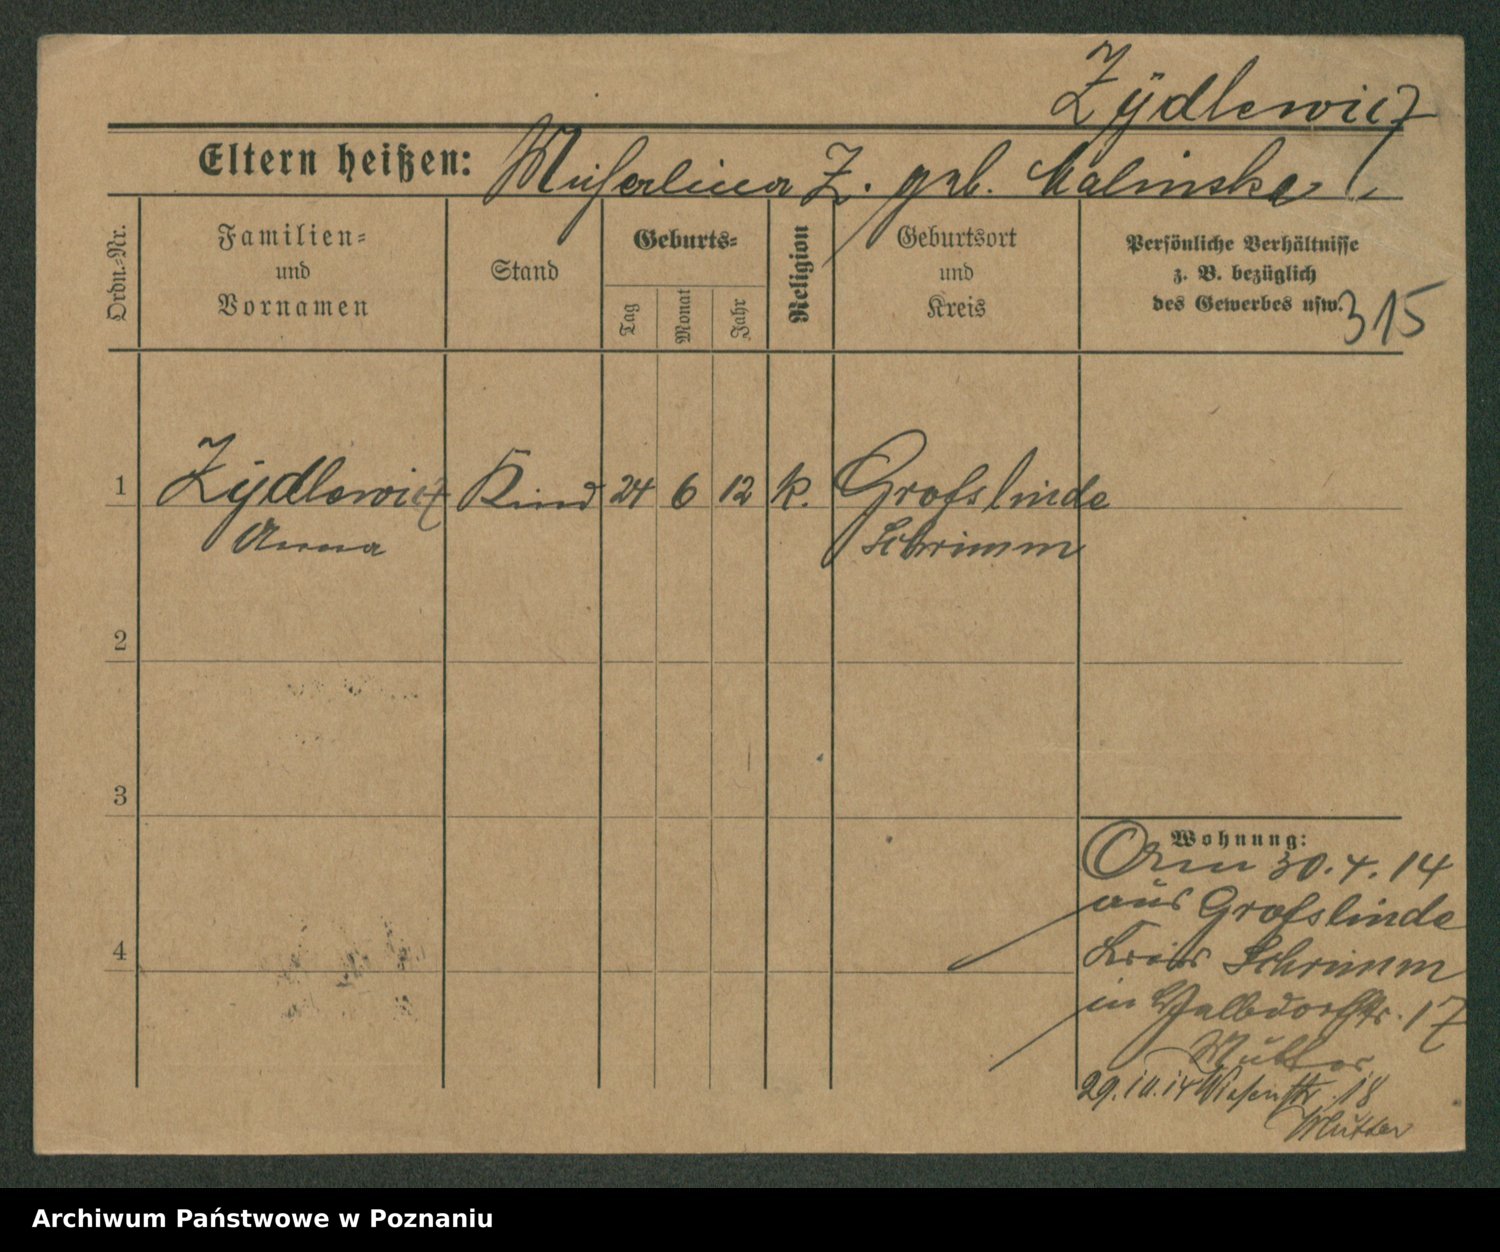 Zÿdlewicz
Eltern heißen: Z. geb. Malinska
Ordn.-Nr.
Familien-
und
Vornamen
Stand
Geburts-
Tag
Monat
Jahr
Religion
Geburtsort
und
Kreis
Persönliche Verhältnisse
z. B. bezüglich
des Gewerbes usw.
315
1 Zÿdlewicz Kind 24 6 12 k. Grofslinde
Anna Schrimm
2
3
4
Wohnung:
30.4.14
aus Grofslinde
Kreis Schrimm
in 17
Mutter
29.10.14 Wiesenstr. 18
Mutter
Archiwum Państwowe w Poznaniu